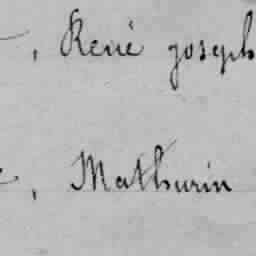 , René joseph
, Mathurin